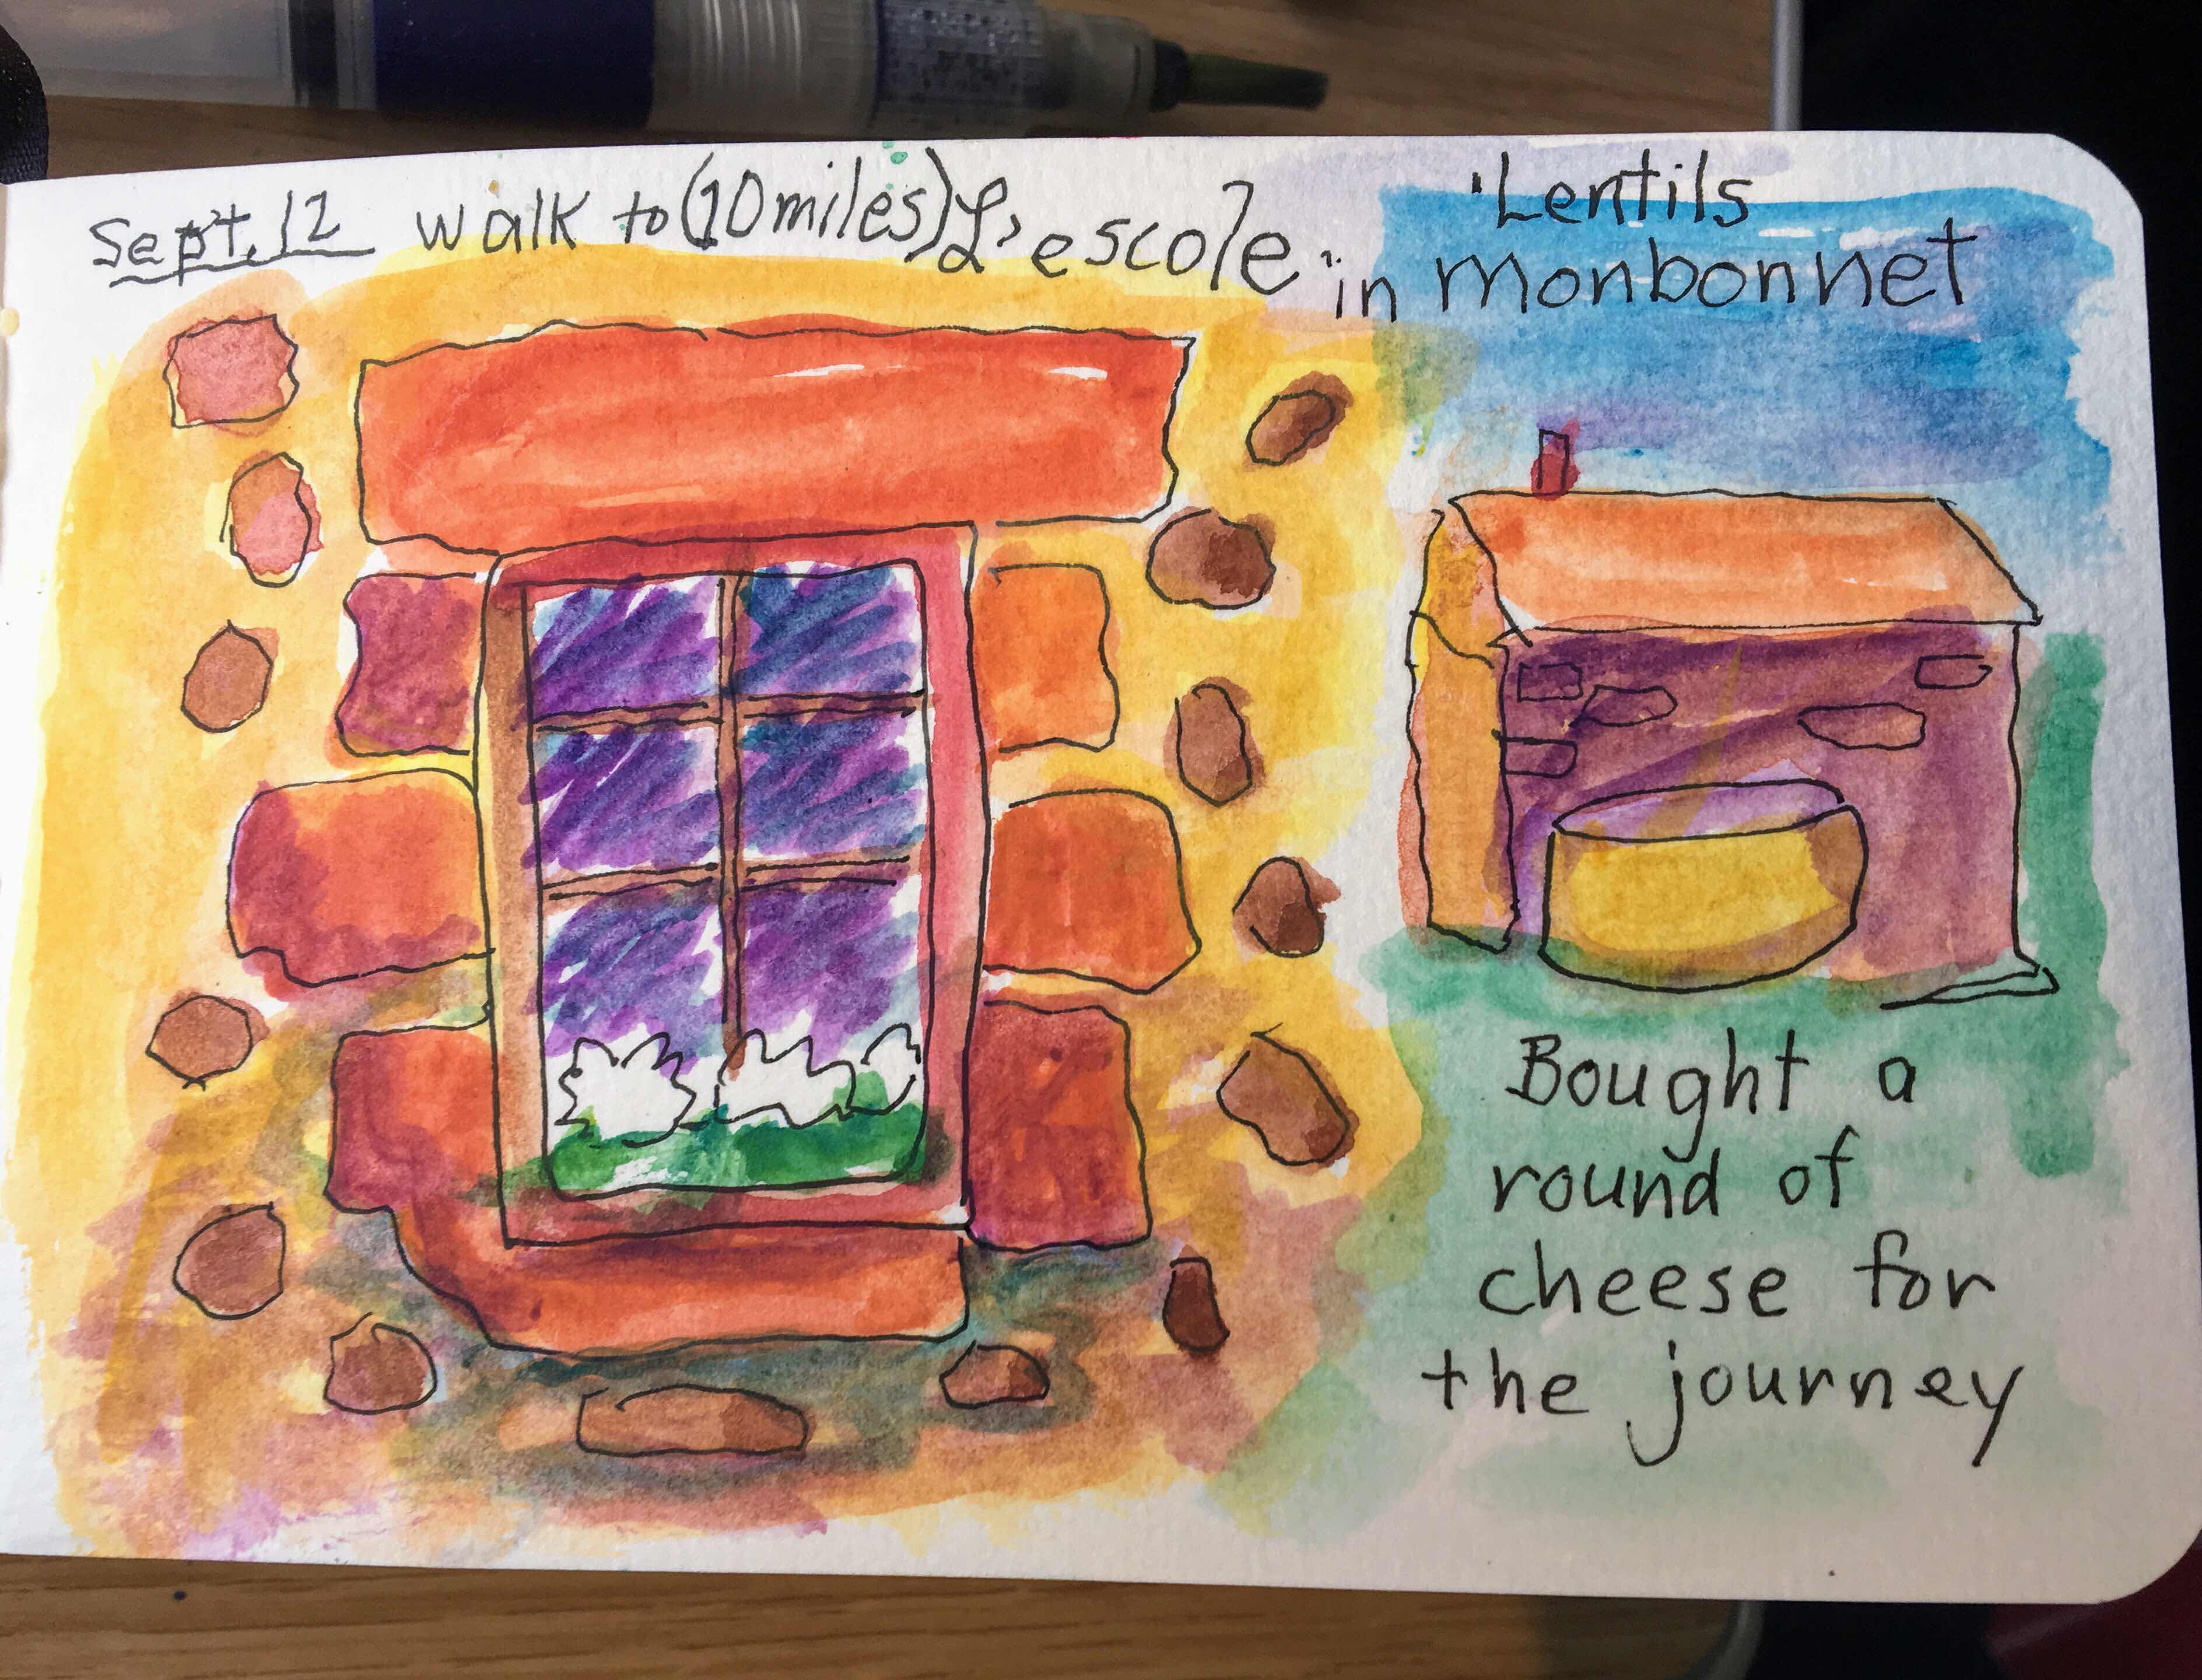 Sept. 12 walk to (10 miles) L'escole
'Lentils
in monbonnet
Bought a
round of
cheese for
the journey